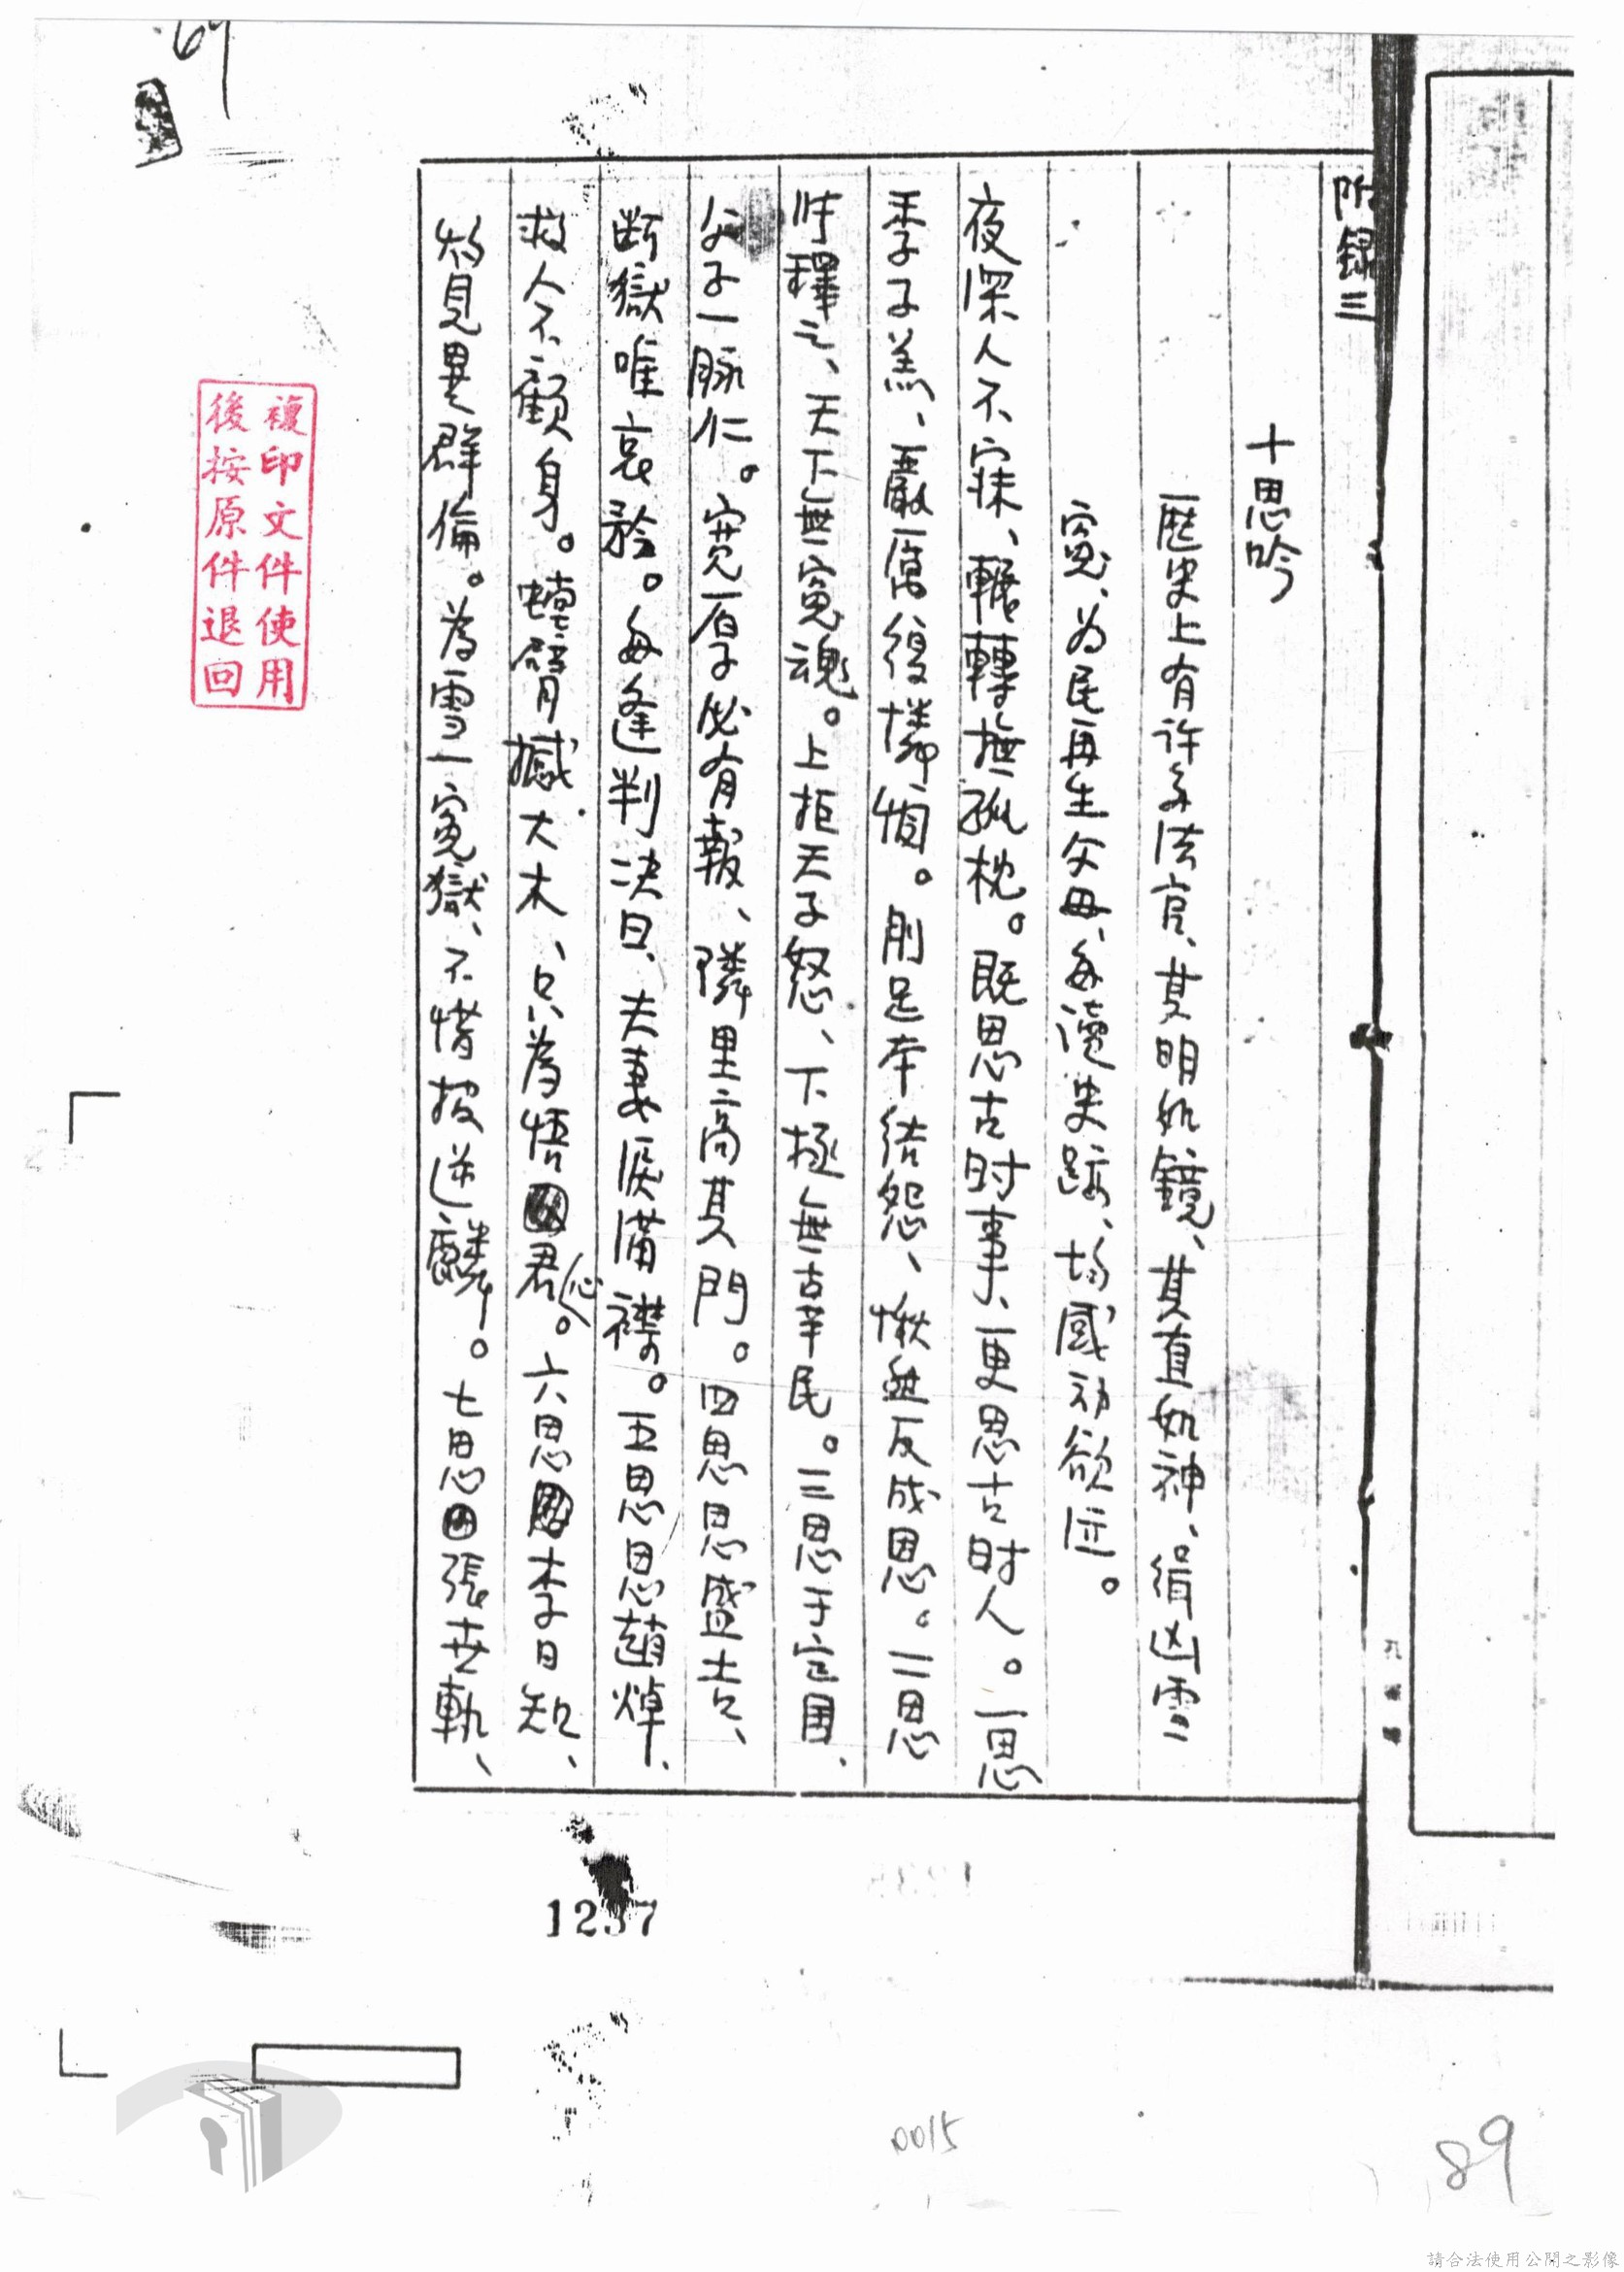 附錄三
十思吟
歷史上有許多法官、其明如鏡、其直如神、緝凶雪
冤、为民再生父母、每讀史蹟、均感动欲泣。
夜深人不寐、輾轉撫孤枕。既思古时事、更思古时人。一思
季子羔、嚴厲復憐憫。刖足本結怨、愀然反成恩。二思
張釋之、天下無冤魂。上拒天子怒、下拯無辜民。三思于定国、
父子一脉仁。寬厚必有報、隣里高其門。四思思盛吉、
断獄唯哀矜。每逢判决日、夫妻淚滿襟。五思思趙焯、
救人不顧身。螳臂撼大木、只為悟君心。六思李日知、
灼見異群倫。為雪一冤獄、不惜披逆麟。七思張世軌、
複印文件使用
後按原件退回
1237
0015
89
請合法使用公開之影像